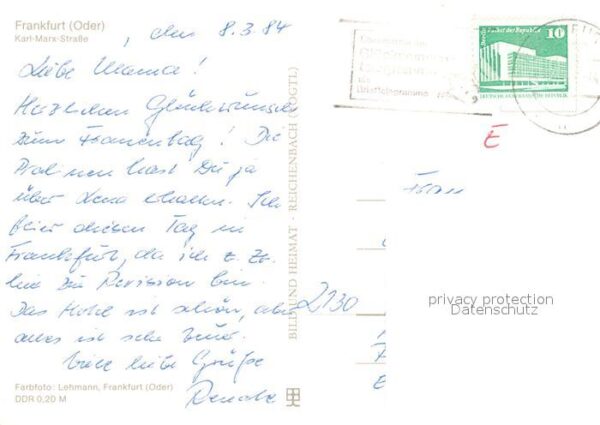 Frankfurt (Oder)
Karl-Marx-Straße
, den 8.3.84
Liebe Mama!
Herzlichen Glückwunsch
zum Frauentag! Die
hast Du ja
über Lena erhalten. Ich
feier diesen Tag in
Frankfurt, da ich z. Zt.
hier zur Revision bin.
Das Hotel ist schön, aber
alles ist sehr teuer.
Viele liebe Grüße
Renate
Farbfoto: Lehmann, Frankfurt (Oder)
DDR 0,20 M
BILD UND HEIMAT · REICHENBACH (VOGTL)
Palast der Republik
10
DEUTSCHE DEMOKRATISCHE REPUBLIK
E
Frau
2130
privacy protection
Datenschutz